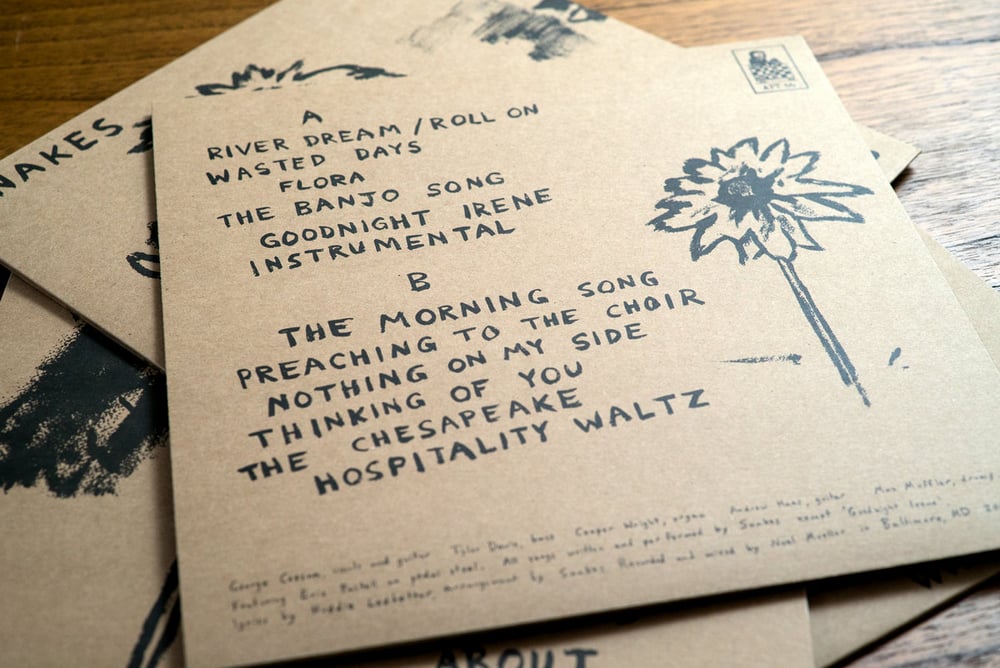 A
RIVER DREAM / ROLL ON
WASTED DAYS
FLORA
THE BANJO SONG
GOODNIGHT IRENE
INSTRUMENTAL
B
THE MORNING SONG
PREACHING TO THE CHOIR
NOTHING ON MY SIDE
THINKING OF YOU
THE CHESAPEAKE
HOSPITALITY WALTZ
George vocals and guitar Tyler Davis, bass Cooper Wright, organ Andrew guitar Max drums
Featuring Eric on pedal steel. All songs written and performed by Snakes except 'Goodnight Irene'
lyrics by Huddie Ledbetter, arrangement by Snakes Recorded and mixed by Noel Mueller in Baltimore, MD
APT
NAKES
ABOUT